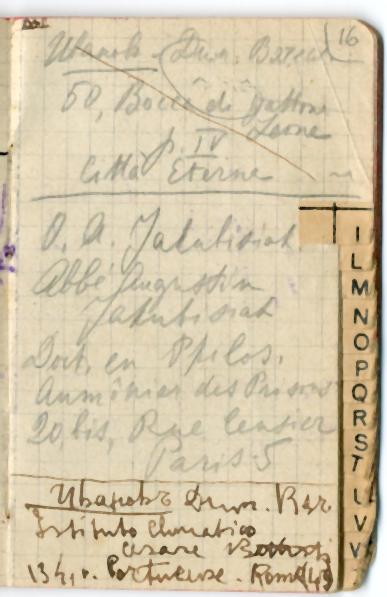 16
Ивановъ Дим. Вяч.
60, Bocca di
Leone
p. IV
Città Eterne
O. A. Jakubisiak
Abbé Augustin
Jakubisiak
Doct. en Philos.
Aumônier des Prisons
20 bis, Rue Censier
Paris 5
Ивановъ Дим. Вяч.
Istituto Climatico
Cesare Battisti
Portuense. Roma
I
L
M
N
O
P
Q
R
S
T
U
V
V